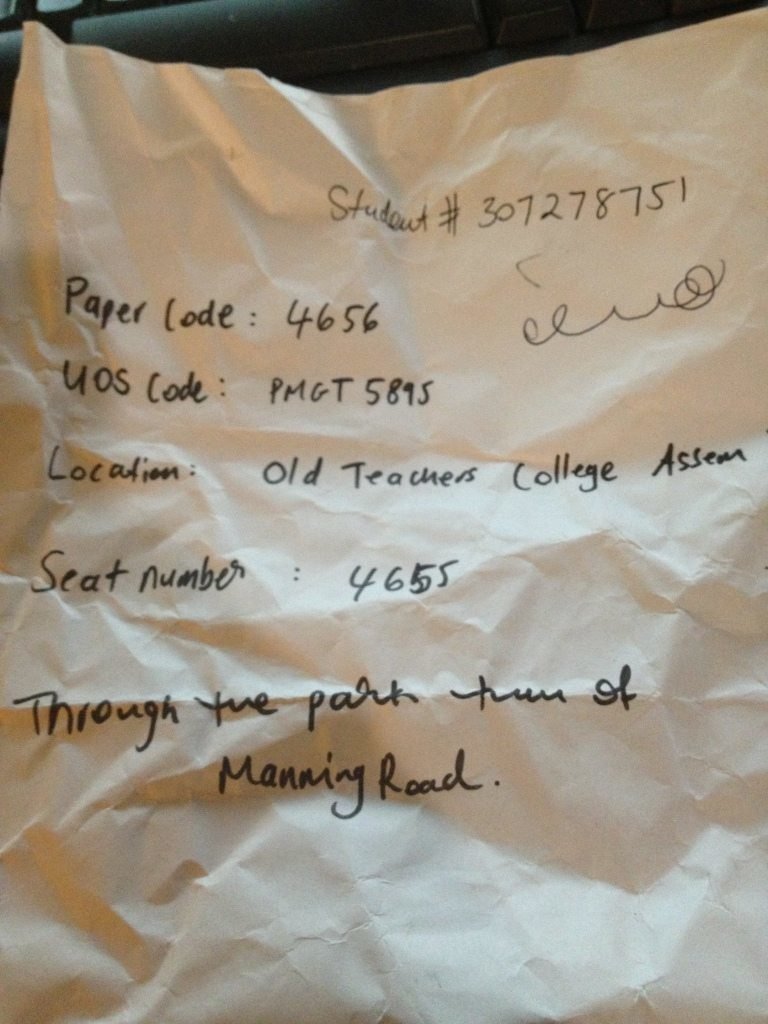 Student # 307278751
Paper Code: 4656
UOS Code: PMGT 5895
Location: Old Teachers College Assem
Seat number : 4655
Through the park turn
Manning Road.